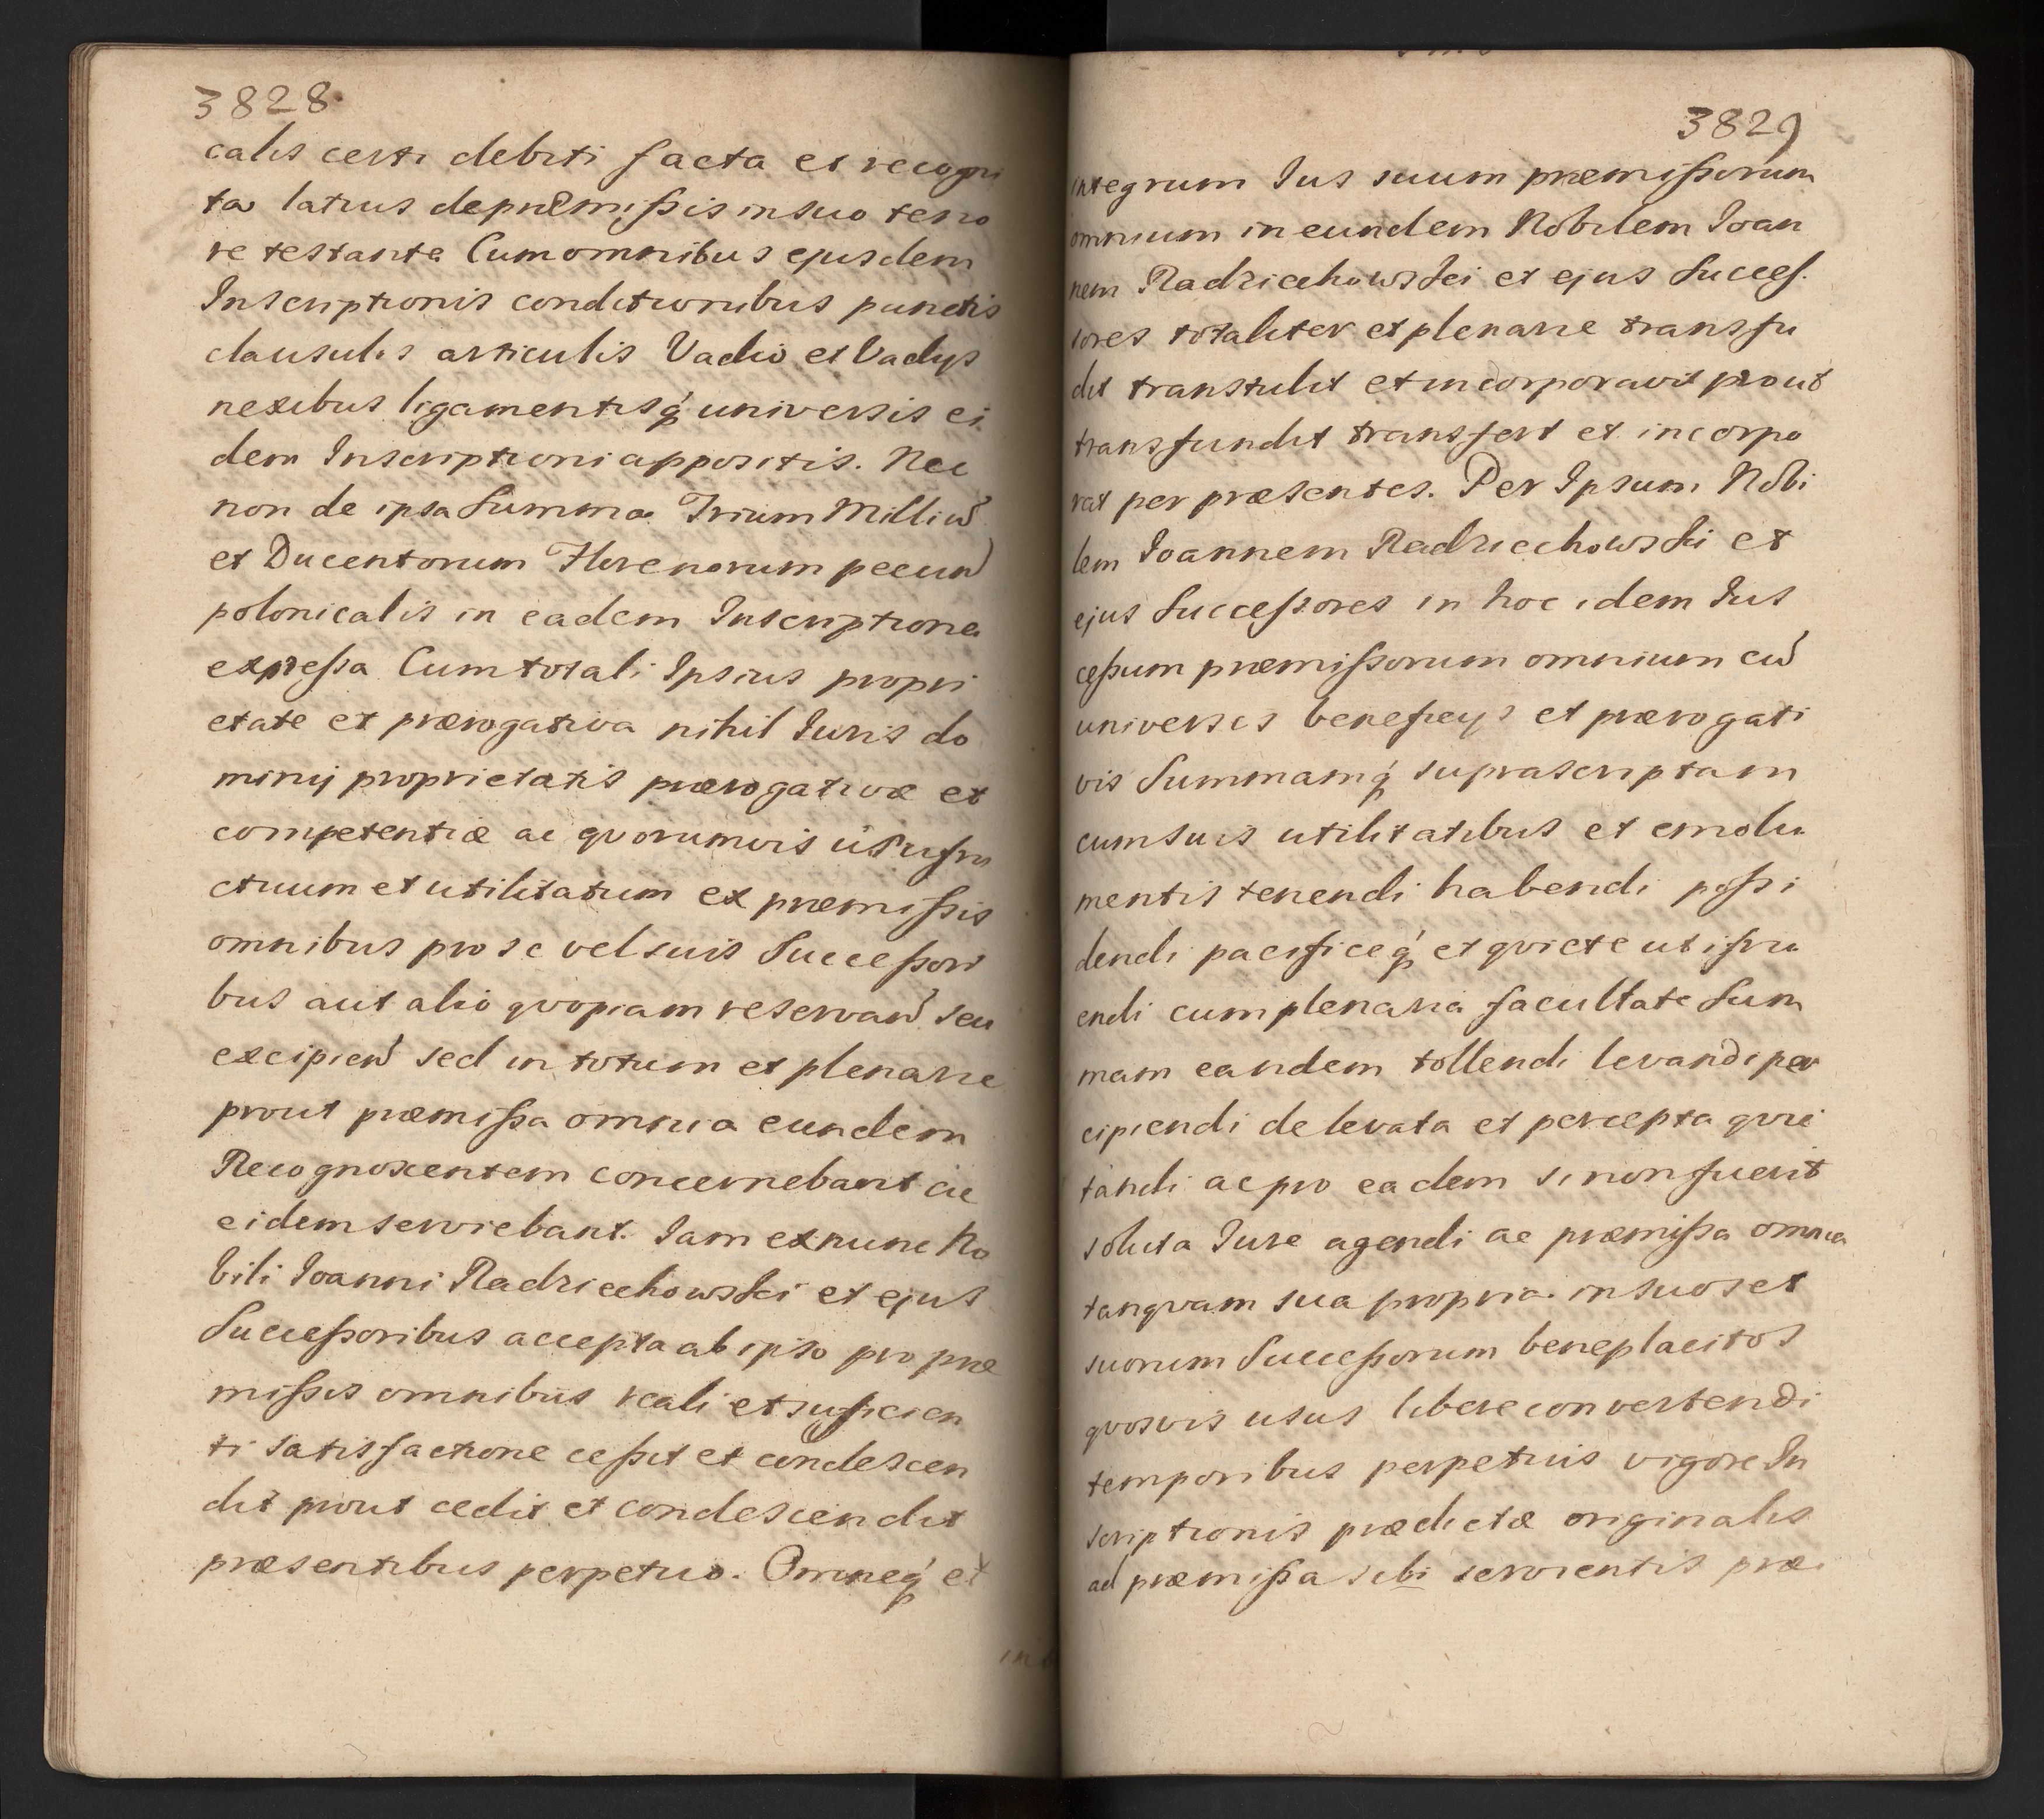 3828
calis certi debiti facta et recogni
ta latius de præmißis in suo teno
re testante Cum omnibus ejusdem
Inscriptionis conditionibus punctis
clausulis articulis Vadio et Vadijs
nexibus ligamentisq́ universis ei
dem Inscriptioni appositis. Nec
non de ipsa Summa Trium Milliu͂
et Ducentorum Florenorum pecun͂
polonicalis in eadem Inscriptione
expreßa Cum totali Ipsius propri
etate et prærogativa nihil Iuris do
minij proprietatis prærogativæ et
competentiæ ac qvorumvis usufru
ctuum et utilitatum ex præmißis
omnibus pro se vel suis Succeßori
bus aut alio qvopiam reservan͂ seu
excipien͂ sed in totum et plenarie
prout præmißa omnia eundem
Recognoscentem concernebant ac
eidem serviebant. Iam ex nunc No
bili Ioanni Radziechowski et ejus
Succeßoribus accepta ab ipso pro præ
mißis omnibus reali et sufficien
ti satisfactione ceßit et condescen
dit prout cedit et condescendit
præsentibus perpetuo. Omneq́ et
3829
integrum Ius suum præmißorum
omnium in eundem Nobilem Ioan
nem Radziechowski et ejus Succes
sores totaliter et plenarie transfu
dit transtulit et incorporavit prout
transfundit transfert et incorpo
rat per præsentes. Per Ipsum Nobi
lem Ioannem Radziechowski et
ejus Succeßores in hoc idem Ius
ceßum præmißorum omnium cu͂
universis beneficijs et prærogati
vis Summamq́ suprascriptam
cum suis utilitatibus et emolu
mentis tenendi habendi poßi
dendi pacificeq́ et qviete uti fru
endi cum plenaria facultate Sum
mam eandem tollendi levandi per
cipiendi de levata et percepta qvie
tandi ac pro eadem si non fuerit
soluta Iure agendi ac præmißa omnia
tanqvam sua propria in suos et
suorum Succeßorum beneplacitos
qvosvis usus libere convertendi
temporibus perpetuis vigore In
scriptionis prædictæ originalis
ad præmißa sibi servientis præ